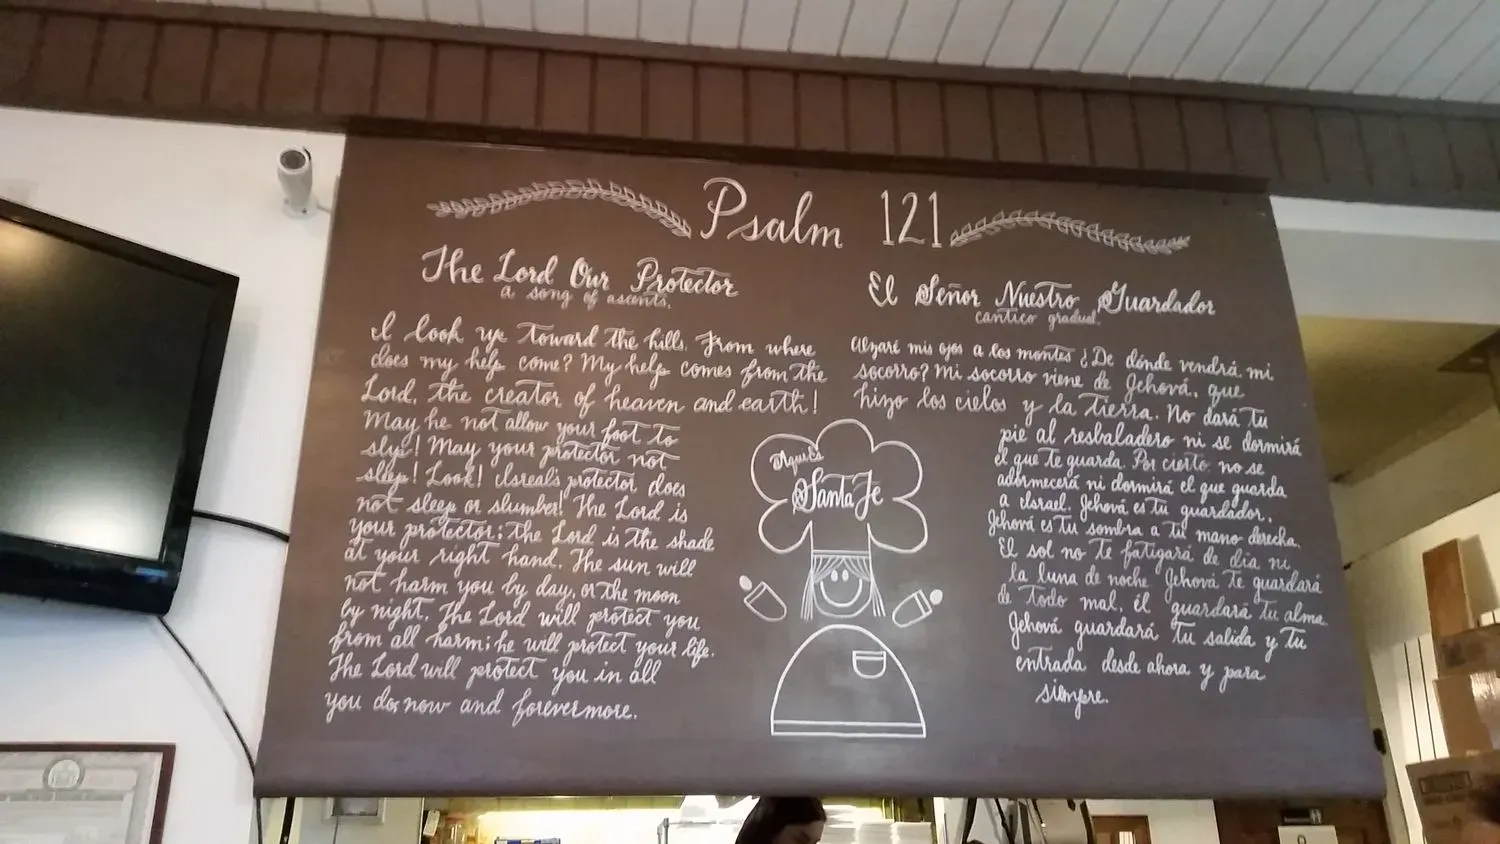 Psalm 121
The Lord Our Protector
a song of ascents.
I look up toward the hills. From where
does my help come? My help comes from the
Lord, the creator of heaven and earth!
May he not allow your foot to
slip! May your protector not
sleep! Look! Israel's protector does
not sleep or slumber! The Lord is
your protector; the Lord is the shade
at your right hand. The sun will
not harm you by day, or the moon
by night. The Lord will protect you
from all harm; he will protect your life.
The Lord will protect you in all
you do, now and forevermore.
El Señor Nuestro Guardador
cantico gradual.
Alzaré mis ojos a los montes ¿De dónde vendrá mi
socorro? Mi socorro viene de Jehová, que
hizo los cielos y la tierra. No dará tu
pie al resbaladero ni se dormirá
el que te guarda. Por cierto, no se
adormecerá ni dormirá el que guarda
a Israel. Jehová es tu guardador,
Jehová es tu sombra a tu mano derecha.
El sol no te fatigará de dia ni
la luna de noche. Jehová te guardará
de todo mal, él guardará tu alma.
Jehová guardará tu salida y tu
entrada desde ahora y para
siempre.
Aqui Es
Santa Fe